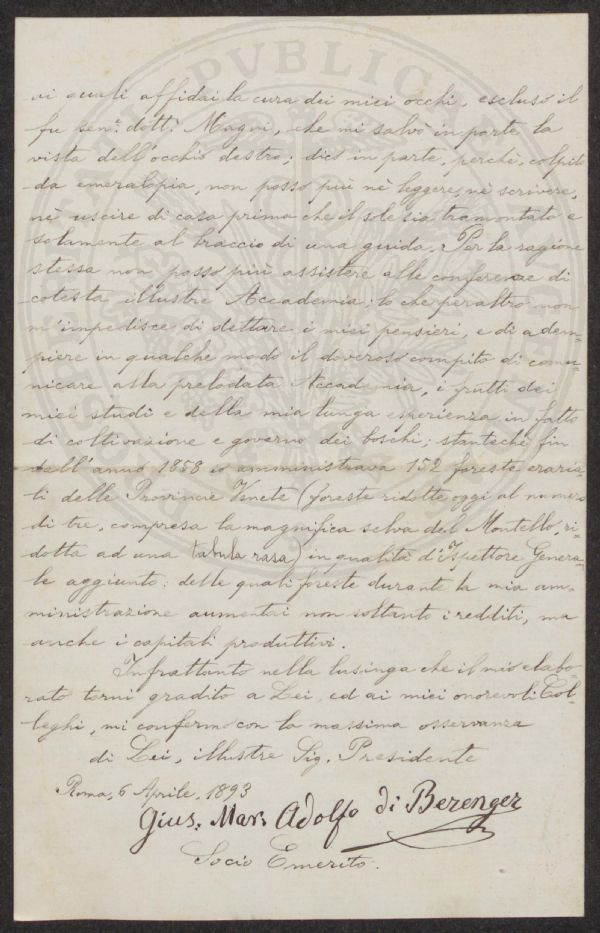 ai quali affidai la cura dei miei occhi, escluso il
fu sen.e dott.r Magni, che mi salvò in parte la
vista dell'occhio destro; dico in parte, perchè, colpito
da emeralopia, non posso più nè leggere, nè scrivere,
nè uscire di casa prima che il sole sia tramontato e
solamente al braccio di una guida. Per la ragione
stessa non posso più assistere alle conferenze di
cotesta illustre Accademia: lo che peraltro non
m'impedisce di dettare i miei pensieri, e di adem-
piere in qualche modo il doveroso compito di comu-
nicare alla prelodata Accademia, i frutti dei
miei studi e della mia lunga esperienza in fatto
di coltivazione e governo dei boschi; stantechè fin
dall'anno 1858 io amministrava 152 foreste eraria-
li delle Provincie Venete (foreste ridotte oggi al numero
di tre, compresa la magnifica selva del Montello, ri-
dotta ad una tabula rasa) in qualità d'Ispettore Genera-
le aggiunto: delle quali foreste durante la mia am-
ministrazione aumentai non soltanto i redditi, ma
anche i capitali produttivi.
Infrattanto nella lusinga che il mio elabo-
rato torni gradito a Lei ed ai miei onorevoli Col-
leghi, mi confermo con la massima osservanza
di Lei, illustre Sig. Presidente
Roma, 6 Aprile, 1893
Gius. Mar. Adolfo di Berenger
Socio Emerito.